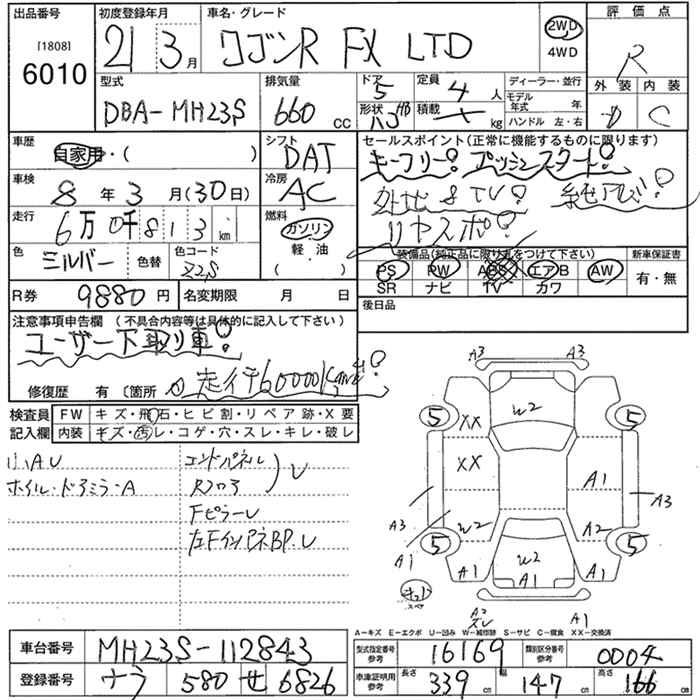 出品番号
[1808]
6010
初度登録年月
21 3月
車名・グレード
ワゴンR FX LTD
2WD
4WD
評価点
R
外装 内装
D C
型式
DBA-MH23S
排気量
660 cc
ドア
5
形状
ハコHB
定員
4 人
積載
kg
ディーラー・並行
モデル年式 年
ハンドル 左・右
車歴
自家用・( )
シフト
DAT
セールスポイント(正常に機能するものに限ります)
キーフリー! プッシュスタート!
外地8TV! 純アルミ!
リヤスポ!
車検
8年3月(30日)
冷房
AC
走行
6万0千813 km
燃料
ガソリン
軽油
( )
色
シルバー
色替
色コード
Z2S
装備品(純正品に限り丸をつけて下さい)
PS PW ABS エアB AW
SR ナビ TV カワ
新車保証書
有・無
R券 9880円
名変期限 月 日
後日品
注意事項申告欄 (不具合内容等は具体的に記入して下さい)
ユーザー下取り車!
走行60000Km台!
修復歴 有 〔箇所
検査員記入欄
FW キズ・飛石・ヒビ割・リペア跡・X要
内装 キズ・汚レ・コゲ・穴・スレ・キレ・破レ
小AU
ホイル・ドアミラーA
エンドパネル
Rフロア
FピラーU
左FインパネBP.U
A3 A3
W2
5 5
XX
XX
A1
A3 A3
W2 A2
A1
5 5
W2
A1 A1 A1
スペア
A2
スレ
A1
A=キズ E=エクボ U=凹み W=補修跡 S=サビ C=腐食 XX=交換済
車台番号 MH23S-112843
登録番号 ナラ 580 せ 6826
型式指定番号 参考 16169
類別区分番号 参考 0004
車庫証明用 参考
長さ 339 cm
幅 147 cm
高さ 166 cm